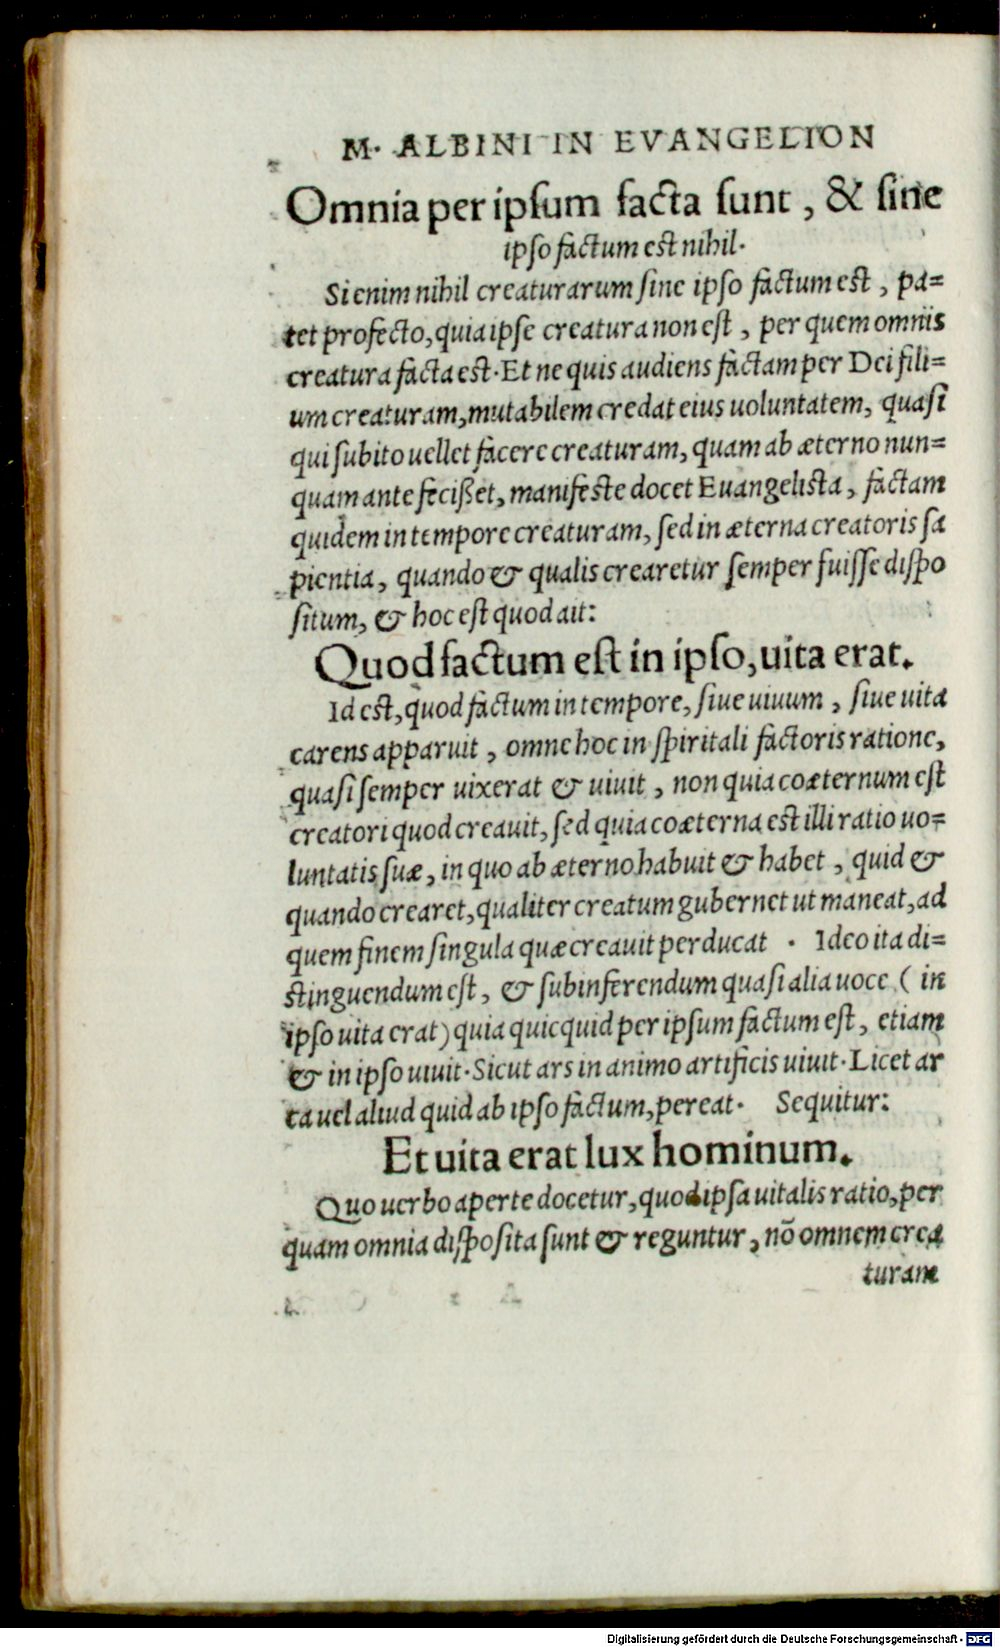 M. ALBINI IN EVANGELION
Omnia per ipſum facta ſunt, & ſine
ipſo factum est nihil.
Si enim nihil creaturarum ſine ipſo factum est, pa=
tet profecto, quia ipſe creatura non eſt, per quem omnis
creatura facta est. Et ne quis audiens factam per Dei fili=
um creaturam, mutabilem credat eius uoluntatem, quaſi
qui ſubito uellet facere creaturam, quam ab æterno nun=
quam ante feciſſet, manifeste docet Euangelista, factam
quidem in tempore creaturam, ſed in æterna creatoris ſa
pientia, quando & qualis crearetur ſemper fuiſſe diſpo
ſitum, & hoc est quod ait:
Quod factum eſt in ipſo, uita erat.
Id est, quod factum in tempore, ſiue uiuum, ſiue uita
carens apparuit, omne hoc in ſpiritali factoris ratione,
quaſi ſemper uixerat & uiuit, non quia coæternum eſt
creatori quod creauit, ſed quia coæterna est illi ratio uo=
luntatis ſuæ, in quo ab æterno habuit & habet, quid &
quando crearet, qualiter creatum gubernet ut maneat, ad
quem finem ſingula quæ creauit perducat. Ideo ita di=
stinguendum eſt, & ſubinferendum quaſi alia uoce (in
ipſo uita erat) quia quicquid per ipſum factum eſt, etiam
& in ipſo uiuit. Sicut ars in animo artificis uiuit. Licet ar
ca uel aliud quid ab ipſo factum, pereat. Sequitur:
Et uita erat lux hominum.
Quo uerbo aperte docetur, quod ipſa uitalis ratio, per
quam omnia diſpoſita ſunt & reguntur, nõ omnem crea
turam
Digitalisierung gefördert durch die Deutsche Forschungsgemeinschaft - DFG